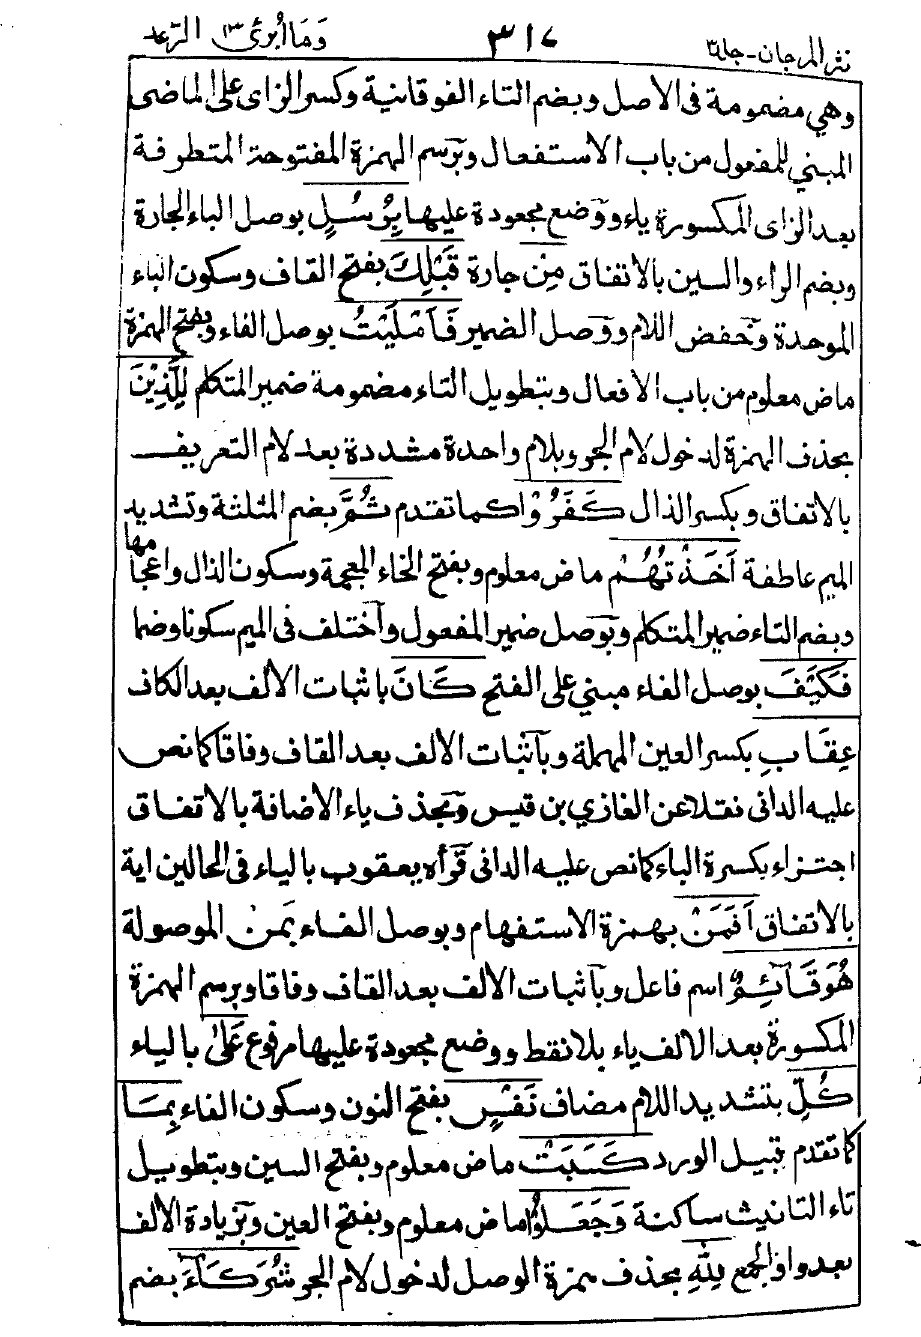 نثر المرجان - جلد ٣ ٣١٧ وما ابرئ ١٣ الرعد
وهي مضمومة فى الاصل وبضم التاء الفوقانية وكسر الزاى على الماضى
المبني للمفعول من باب الاستفعال وبرسم الهمزة المفتوحة المتطرفة
بعد الزاى المكسورة ياء ووضع مجعودة عليها بِرُسُلٍ بوصل الباء الجارة
وبضم الراء والسين بالاتفاق مِن جارة قَبْلِكَ بفتح القاف وسكون الباء
الموحدة وخفض اللام ووصل الضمير فَاَمْلَيْتُ بوصل الفاء وبفتح الهمزة
ماض معلوم من باب الافعال وبتطويل التاء مضمومة ضمير المتكلم لِلَّذِيْنَ
بحذف الهمزة لدخول لام الجر وبلام واحدة مشددة بعد لام التعريف
بالاتفاق وبكسر الذال كَفَرُوْا كما تقدم ثُمَّ بضم المثلثة وتشديد
الميم عاطفة اَخَذْتُهُمْ ماض معلوم وبفتح الخاء المعجمة وسكون الذال واعجامها
وبضم التاء ضمير المتكلم وبوصل ضمير المفعول واختلف فى الميم سكونا وضما
فَكَيْفَ بوصل الفاء مبني على الفتح كَانَ باثبات الالف بعد الكاف
عِقَابِ بكسر العين المهملة وباثبات الالف بعد القاف وفاقا كما نص
عليه الدانى نقلا عن الغازي بن قيس وبحذف ياء الاضافة بالاتفاق
اجتزاء بكسرة الباء كما نص عليه الدانى قرأه يعقوب بالياء فى الحالين اية
بالاتفاق اَفَمَنْ بهمزة الاستفهام وبوصل الفاء بمن الموصولة
هُوَ قَآئِمٌ اسم فاعل وباثبات الالف بعد القاف وفاقا وبرسم الهمزة
المكسورة بعد الالف ياء بلا نقط ووضع مجعودة عليها مرفوع عَلىٰ بالياء
كُلِّ بتشديد اللام مضاف نَفْسٍ بفتح النون وسكون الفاء بِمَا
كما تقدم قبيل الورد كَسَبَتْ ماض معلوم وبفتح السين وبتطويل
تاء التانيث ساكنة وَجَعَلُوْا ماض معلوم وبفتح العين وبزيادة الالف
بعد واو الجمع لِلّٰهِ بحذف همزة الوصل لدخول لام الجر شُرَكَآءَ بضم